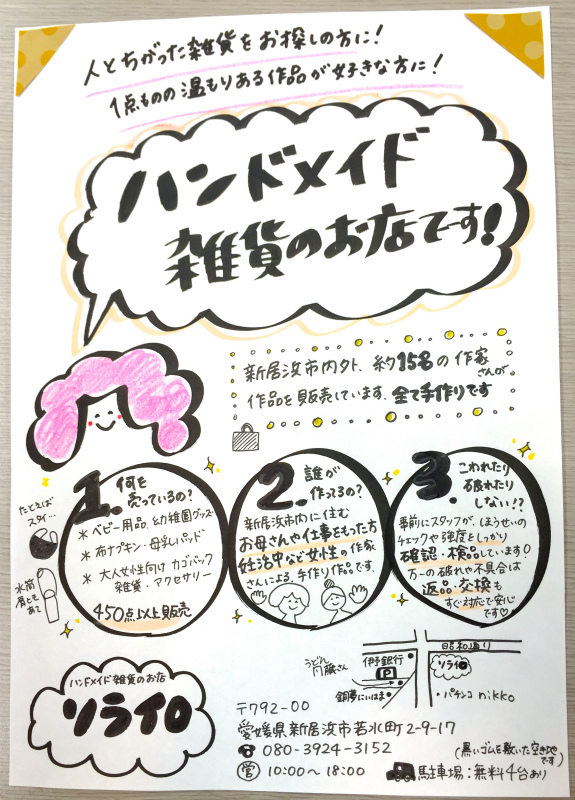 人とちがった雑貨をお探しの方に!
1点ものの温もりある作品が好きな方に!
ハンドメイド
雑貨のお店です!
新居浜市内外、約15名の作家さんが
作品を販売しています。全て手作りです
1. 何を
売っているの?
* ベビー用品、幼稚園グッズ
* 布ナプキン・母乳パッド
* 大人女性向け カゴバック
雑貨・アクセサリー
450点以上販売
たとえば
スタイ…
水筒
肩ひも
あて
2. 誰が
作ってるの?
新居浜市内に住む
お母さんや仕事をもった方
妊活中など女性の作家
さんによる、手作り作品です。
3. こわれたり
破れたり
しない!?
事前にスタッフが、ほうせいの
チェックや強度をしっかり
確認・検品しています!
万一の破れや不具合は
返品・交換も
すぐ対応で安心
です♡
昭和通り
うどん
円藤さん
伊予銀行
P
ソライロ
銅夢にいはま
・パチンコ nikko
ハンドメイド雑貨のお店
ソライロ
〒792-00
愛媛県新居浜市若水町2-9-17
080-3924-3152
営 10:00〜18:00
(黒いゴムを敷いた空き地
です)
駐車場:無料4台あり